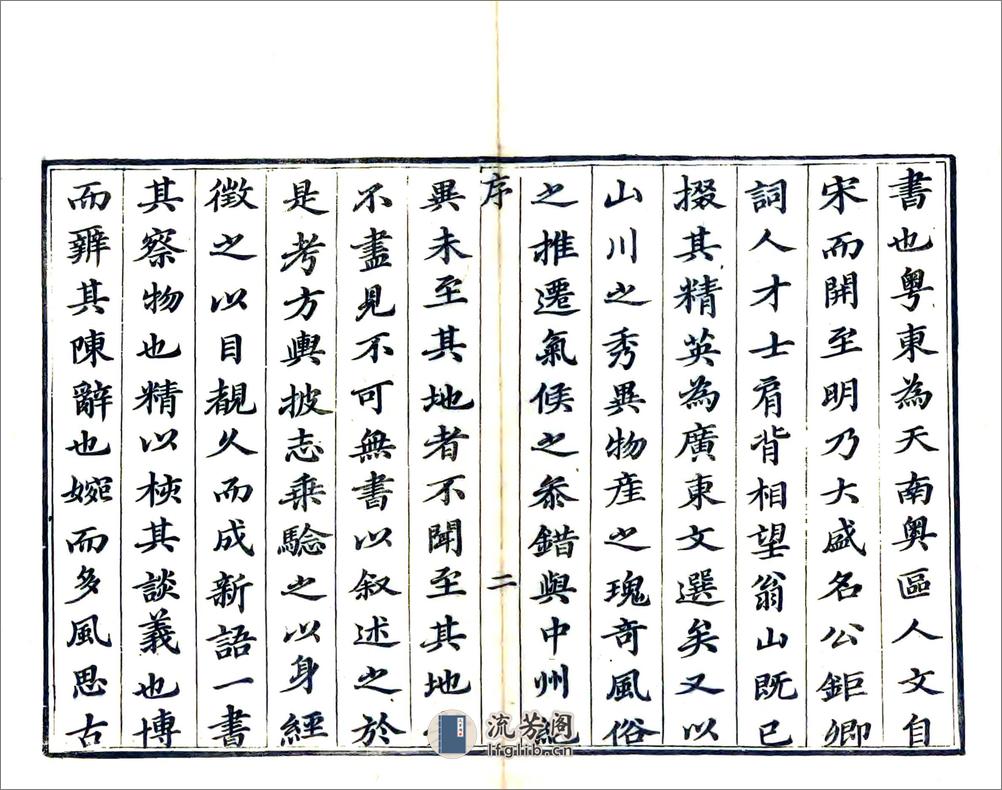 書也粤東為天南奥區人文自
宋而開至明乃大盛名公鉅卿
詞人才士肩背相望翁山既已
掇其精英為廣東文選矣又以
山川之秀異物產之瑰奇風俗
之推遷氣候之叅錯與中州絶
序
二
異未至其地者不聞至其地
不盡見不可無書以叙述之於
是考方輿披志乗驗之以身經
徵之以目覩久而成新語一書
其察物也精以核其談義也博
而辨其陳辭也婉而多風思古
流芳阁
lfglib.cn